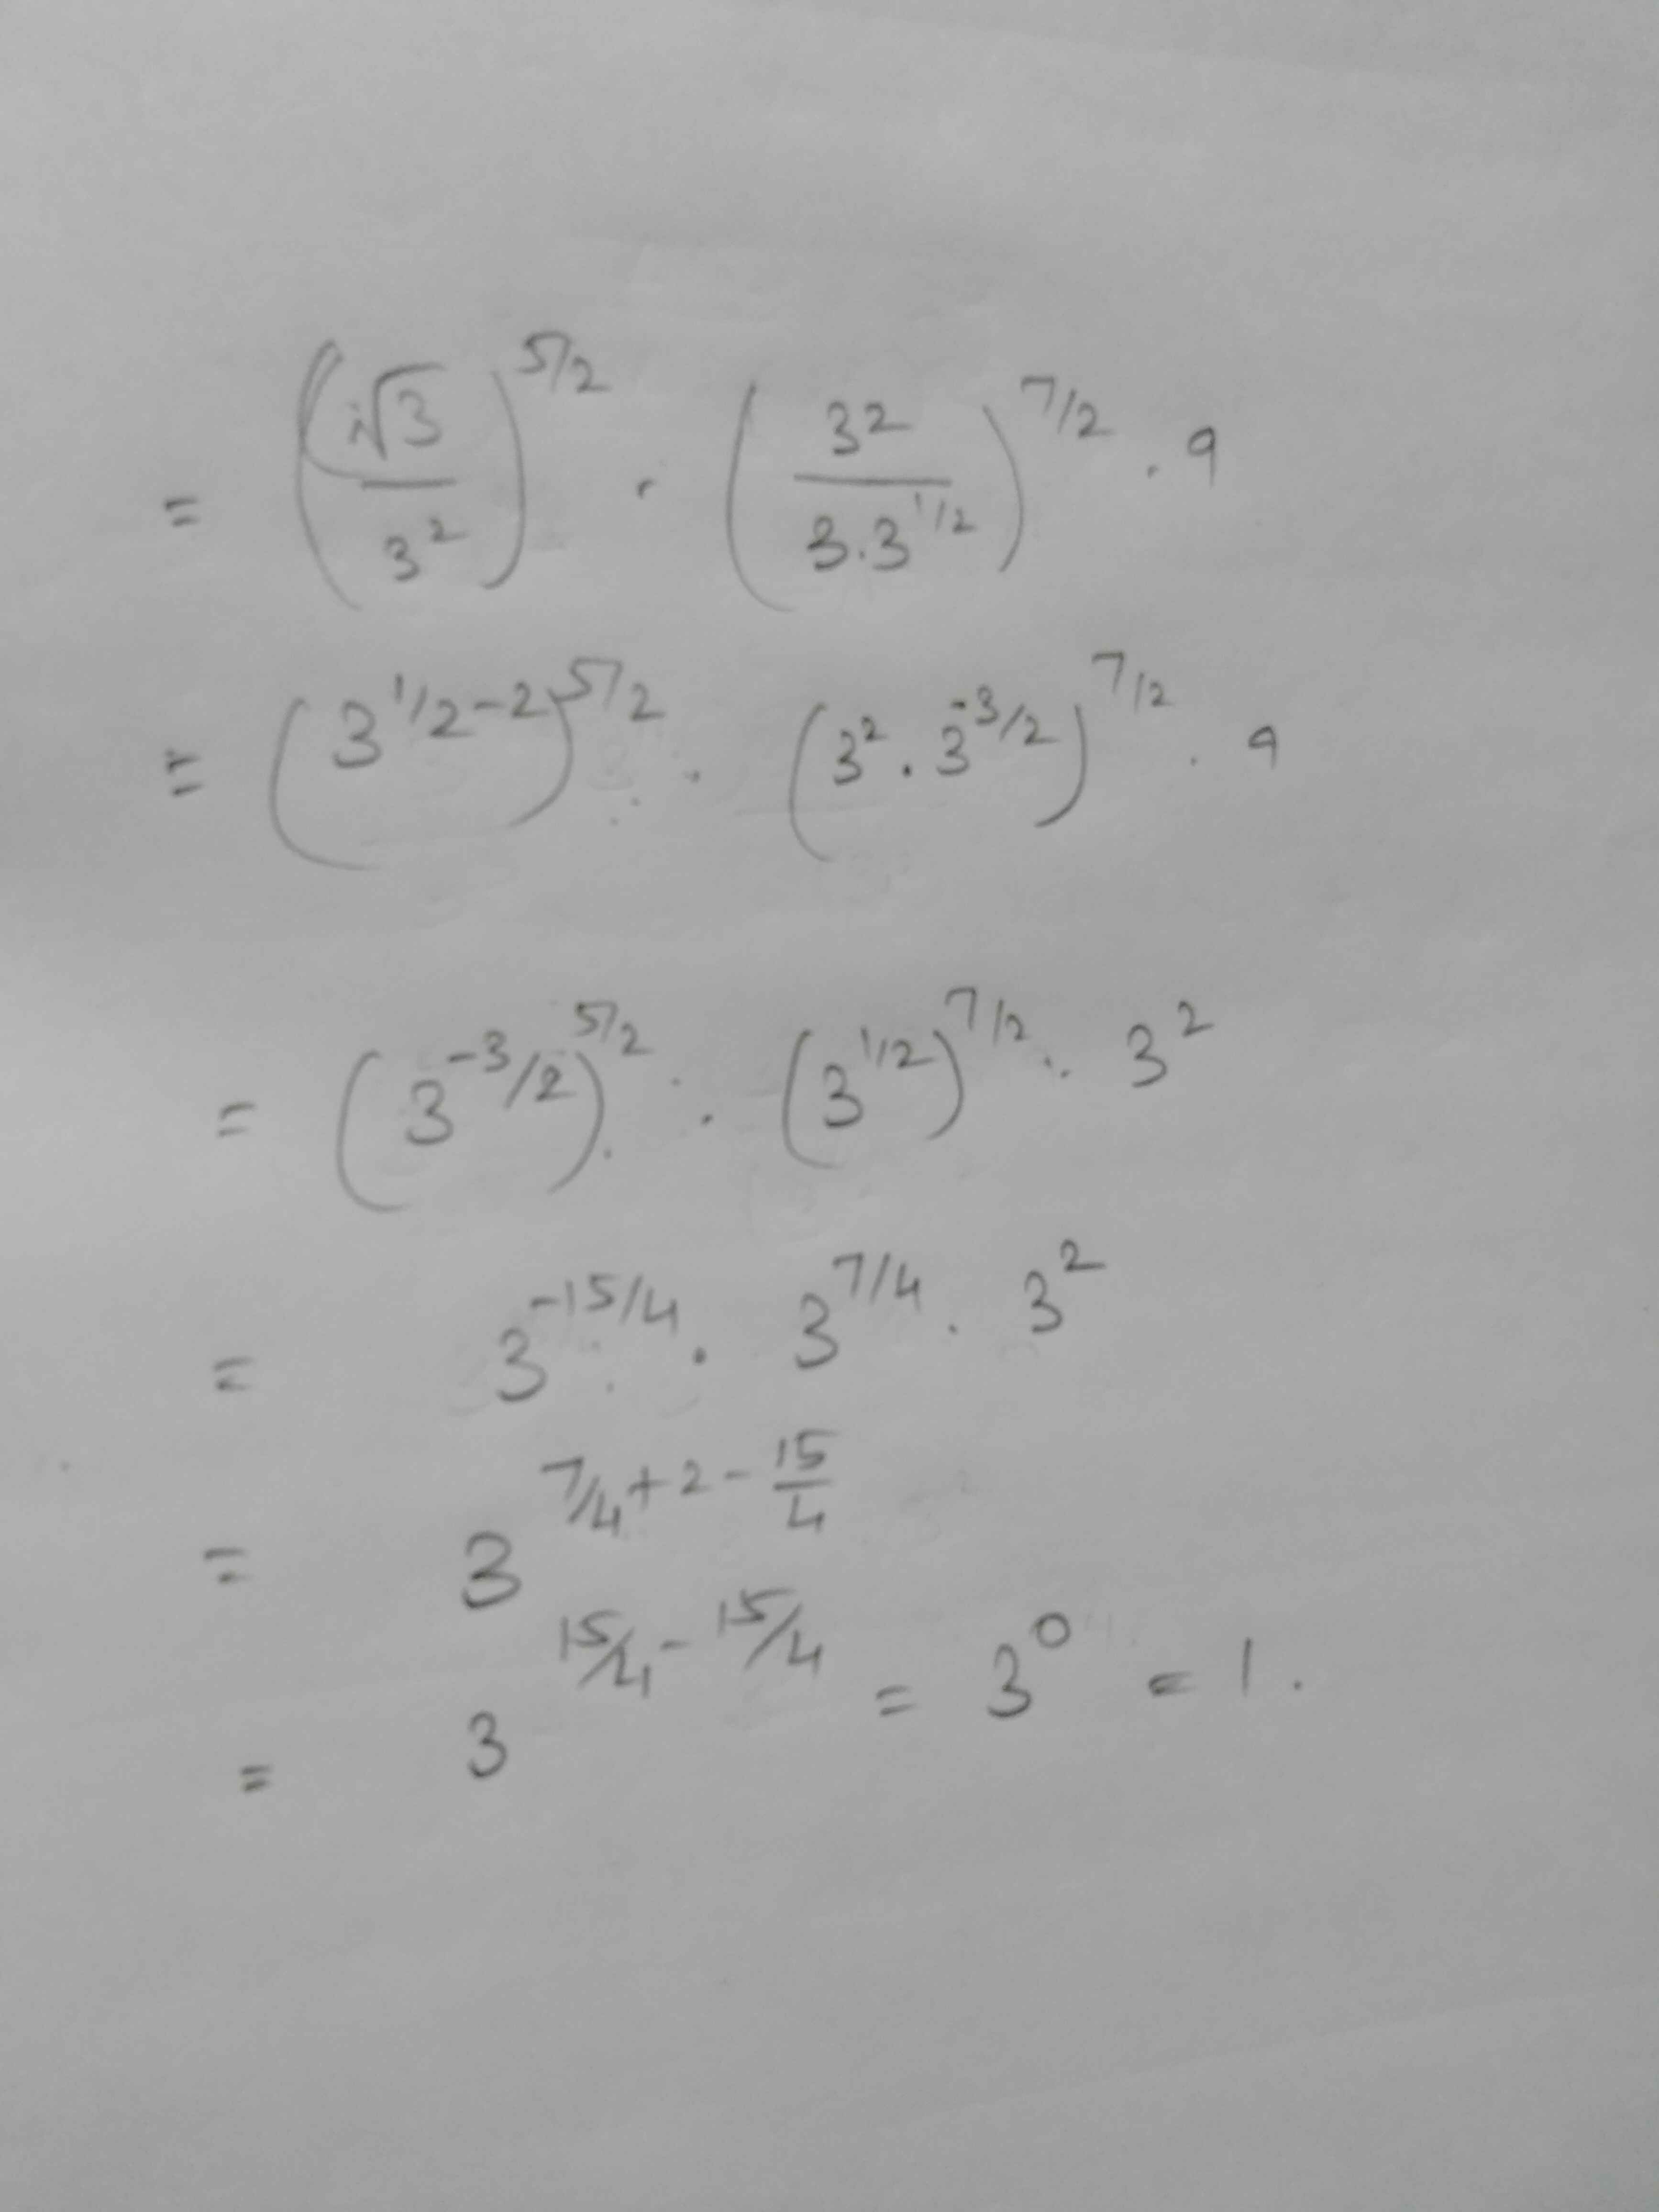 = (√3/3²)^5/2 · (3²/3.3^1/2)^7/2 . 9
= (3^1/2-2)^5/2 . (3² . 3^-3/2)^7/2 . 9
= (3^-3/2)^5/2 . (3^1/2)^7/2 . 3²
= 3^-15/4 . 3^7/4 . 3²
= 3^7/4+2-15/4
= 3^15/4-15/4 = 3^0 = 1.